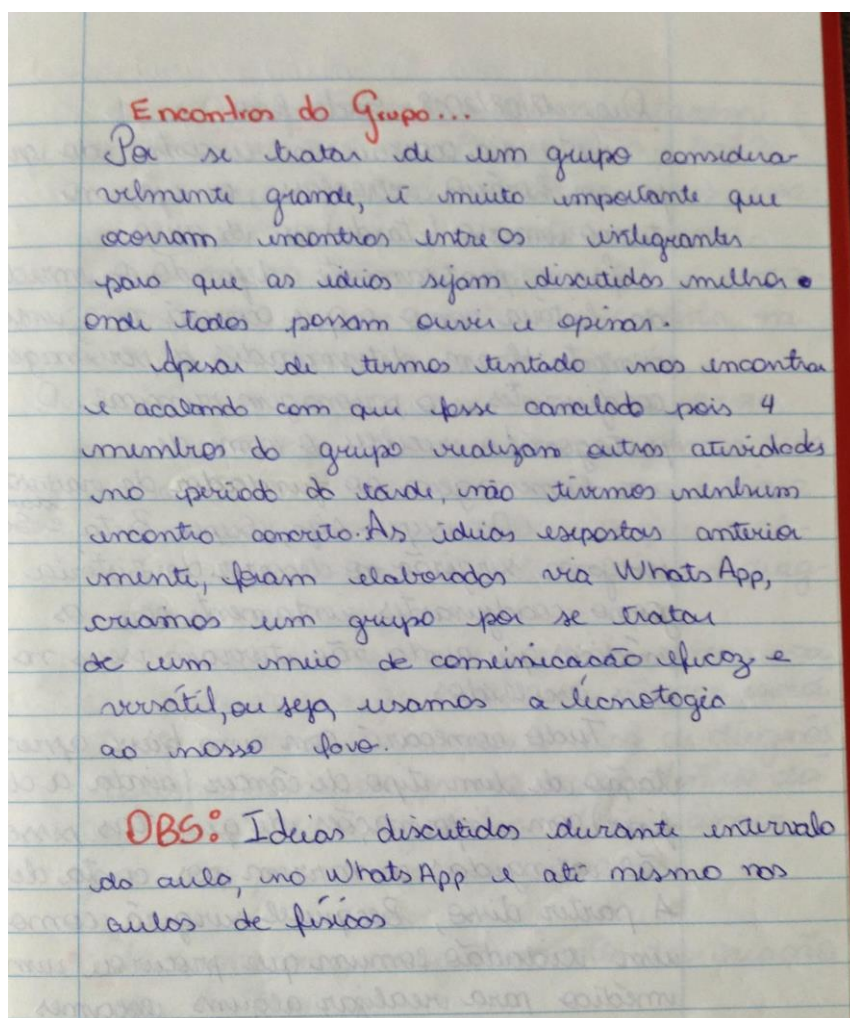 Encontros do Grupo...
Por se tratar de um grupo considera-
velmente grande, é muito importante que
ocorram encontros entre os integrantes
para que as ideias sejam discutidas melhor.
onde todos possam ouvir e opinar.
Apesar de termos tentado nos encontrar
e acabando com que fosse cancelado pois 4
membros do grupo realizam outras atividades
no período da tarde, não tivemos nenhum
encontro concreto. As ideias expostas anterior
mente, foram elaboradas via WhatsApp,
criamos um grupo por se tratar
de um meio de comunicação eficaz e
versátil, ou seja, usamos a tecnologia
ao nosso favor.
OBS: Ideias discutidas durante intervalo
da aula, no WhatsApp e até mesmo nas
aulas de físicas